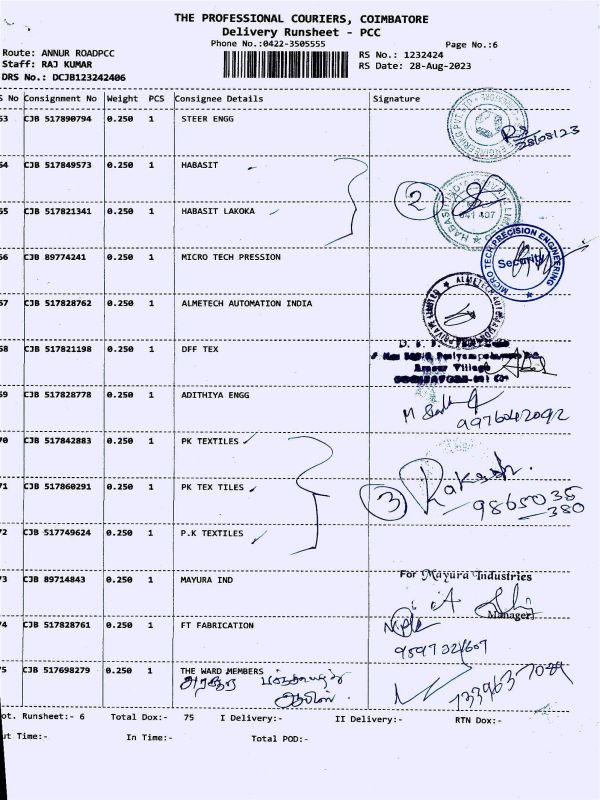 THE PROFESSIONAL COURIERS, COIMBATORE
Delivery Runsheet - PCC
Phone No.:0422-3505555 Page No.:6
Route: ANNUR ROADPCC RS No.: 1232424
Staff: RAJ KUMAR RS Date: 28-Aug-2023
DRS No.: DCJB123242406
S No Consignment No Weight PCS Consignee Details Signature
53 CJB 517890794 0.250 1 STEER ENGG
28/08/23
54 CJB 517849573 0.250 1 HABASIT
2
55 CJB 517821341 0.250 1 HABASIT LAKOKA
641 407
56 CJB 89774241 0.250 1 MICRO TECH PRESSION
MICRO TECH PRECISION ENGINEERING
Security
57 CJB 517828762 0.250 1 ALMETECH AUTOMATION INDIA
58 CJB 517821198 0.250 1 DFF TEX
Annur Village
59 CJB 517828778 0.250 1 ADITHIYA ENGG
9976042092
70 CJB 517842883 0.250 1 PK TEXTILES
71 CJB 517860291 0.250 1 PK TEX TILES
3 Rakash.
98650 35
380
72 CJB 517749624 0.250 1 P.K TEXTILES
73 CJB 89714843 0.250 1 MAYURA IND
For Mayura Industries
Manager
74 CJB 517828761 0.250 1 FT FABRICATION
75 CJB 517698279 0.250 1 THE WARD MEMBERS
ot. Runsheet:- 6 Total Dox:- 75 I Delivery:- II Delivery:- RTN Dox:-
ut Time:- In Time:- Total POD:-